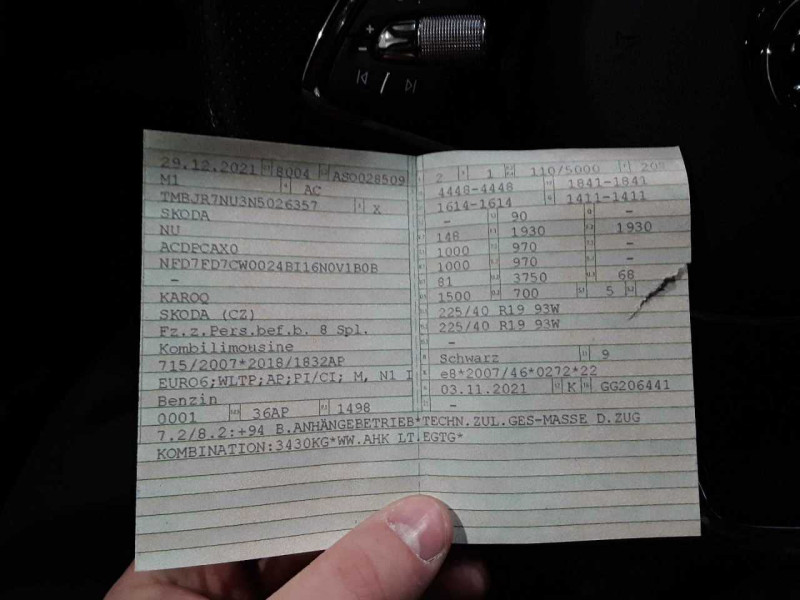 29.12.2021 8004 AS0028509
M1 AC
TMBJR7NU3N5026357 X
SKODA
NU
ACDPCAX0
NFD7FD7CW0024BI16N0V1B0B
-
KAROQ
SKODA (CZ)
Fz.z.Pers.bef.b. 8 Spl.
Kombilimousine
715/2007*2018/1832AP
EURO6;WLTP;AP;PI/CI; M, N1 I
Benzin
0001 36AP 1498
2 1 110/5000
4448-4448 1841-1841
1614-1614 1411-1411
- 90 -
148 1930 1930
1000 970 -
1000 970 -
81 3750 68
1500 700 5
225/40 R19 93W
225/40 R19 93W
-
Schwarz 9
e8*2007/46*0272*22
03.11.2021 K GG206441
-
7.2/8.2:+94 B.ANHÄNGEBETRIEB*TECHN.ZUL.GES-MASSE D.ZUG
KOMBINATION:3430KG*WW.AHK LT.EGTG*